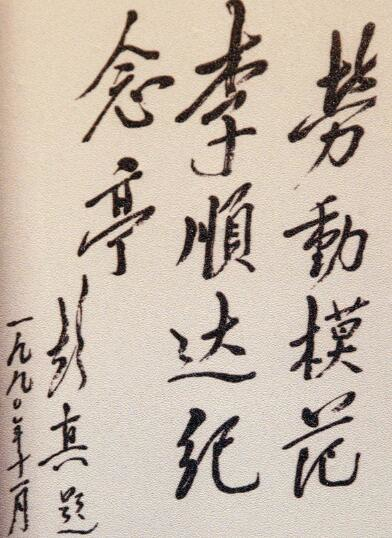 劳動模范
李順达纪
念亭
彭真题
一九九〇年十一月